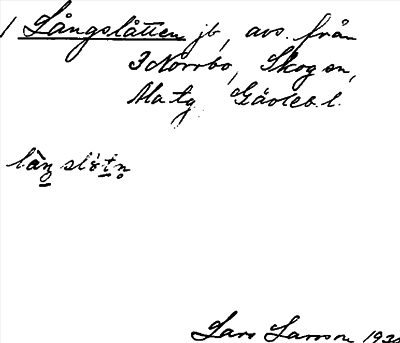 1 Långslåtten jb, avs. från
3 Norrbo, Skog sn,
Ma tg Gävleb. l.
làŋ slò̀tn̥
Lars Larsson 193